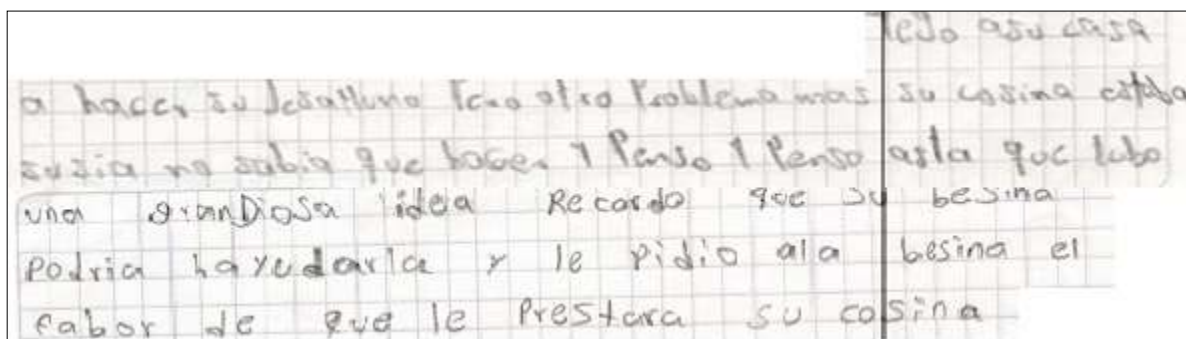 asu casa
a hacer su desalluno Pero otro Problema mas su cosina estaba
susia no sabia que hacer Y Penso Y Penso asta que tubo
una granDiosa idea Recordo que su besina
Podria hayudarla y le Pidio ala besina el
fabor de que le Prestara su cosina